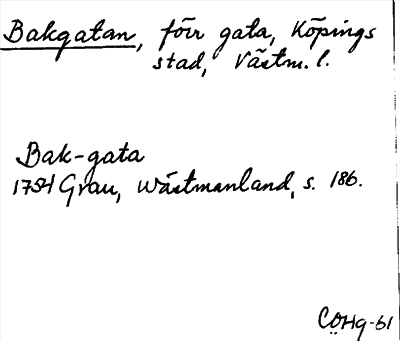 Bakgatan, förr gata, Köpings
stad, Västm. l.
Bak-gata
1754 Grau, Wästmanland, s. 186.
CÖHg-61